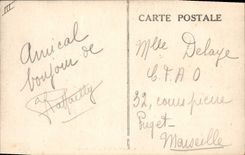 III
CARTE POSTALE
Amical
bonjour de
Mlle Delaye
C.F.A.O
32, cours pierre
Puget-
Marseille